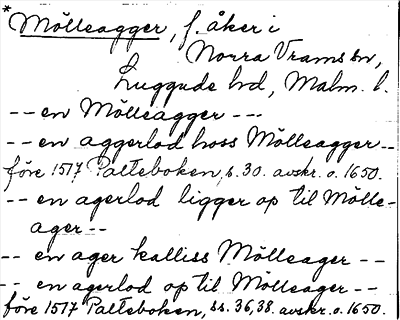 * Mölleagger, f. åker i
Norra Vrams sn,
Luggude hd, Malm. l.
-- en Mölleagger ---
-- en aggerlod hoss Mölleagger --
före 1517 Palteboken, s. 30. avskr. o. 1650.
-- en agerlod ligger op til Mölle-
ager --
-- en ager kalliss Mölleager --
-- en agerlod op til Mölleager --
före 1517 Palteboken, ss. 36, 38. avskr. o. 1650.